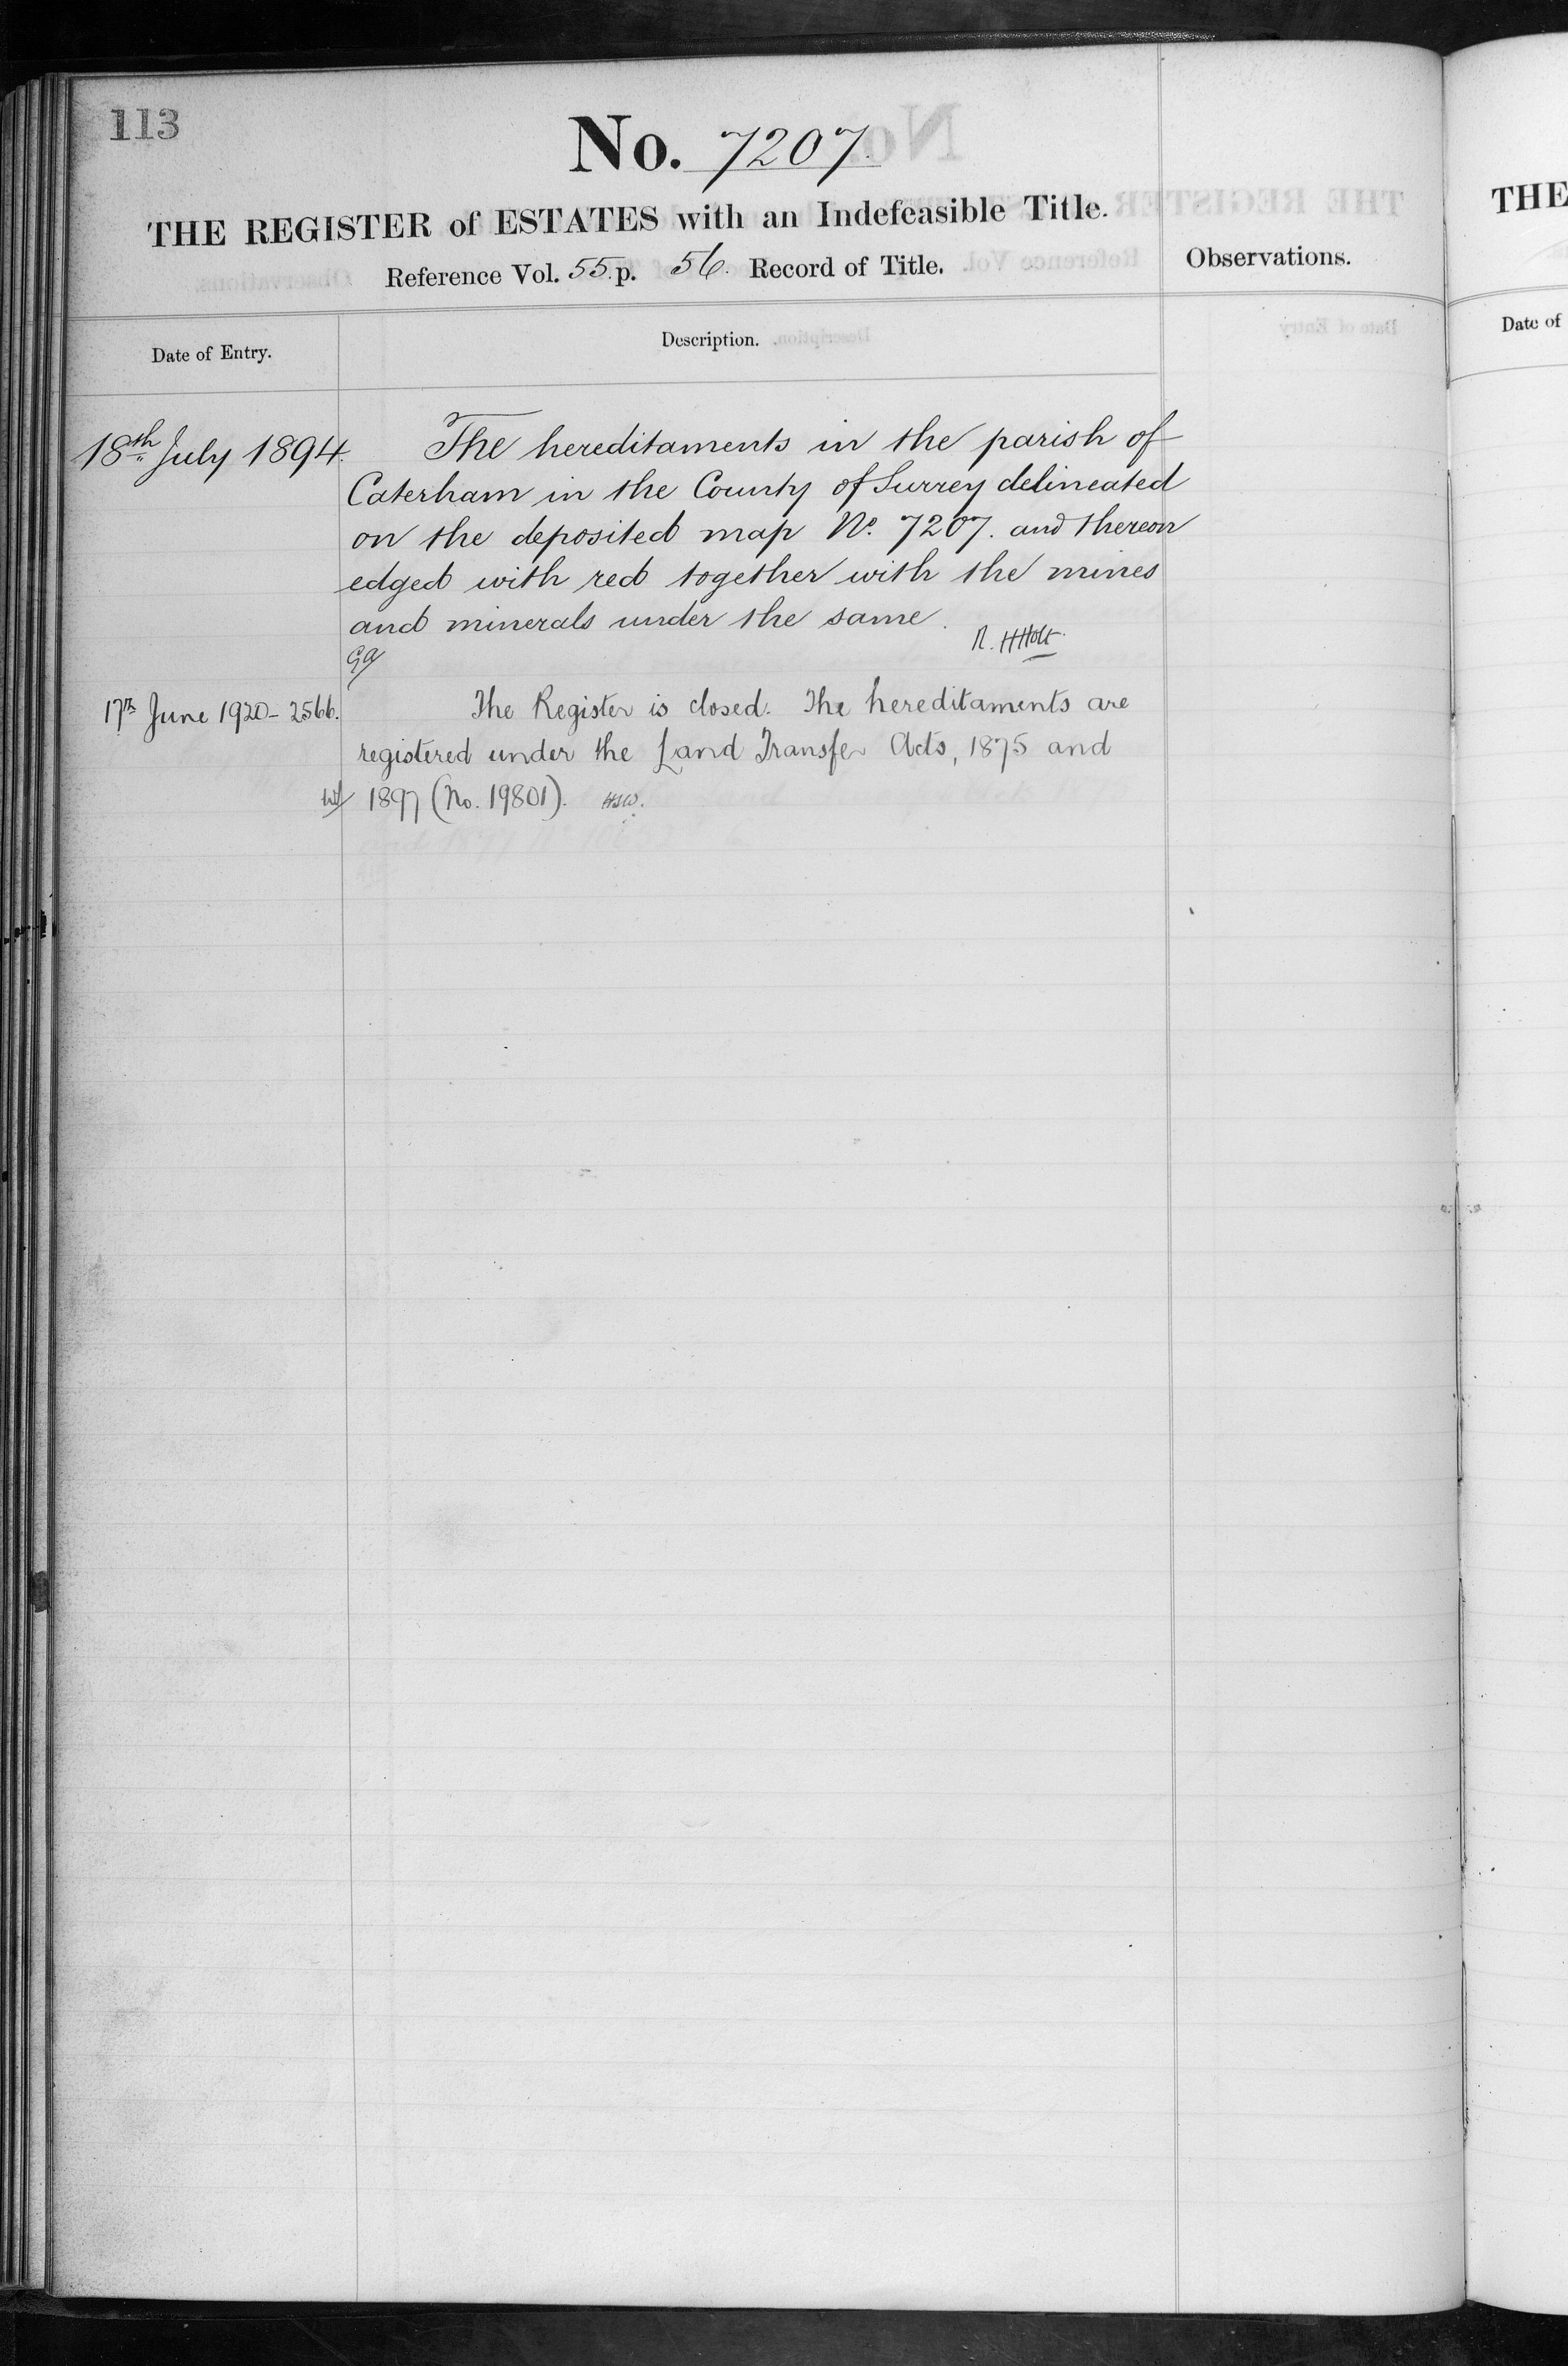 113
No. 7207.
THE REGISTER of ESTATES with an Indefeasible Title.
Reference Vol. 55. p. 56. Record of Title.
Observations.
Date of Entry.
Description.
18th July 1894.
The hereditaments in the parish of
Caterham in the County of Surrey delineated
on the deposited map No. 7207. and thereon
edged with red together with the mines
and minerals under the same.
R. H Holt.
17th June 1920 - 2566.
The Register is closed. The hereditaments are
registered under the Land Transfer Acts, 1875 and
1897 (No. 19801). HSW.
THE
Date of